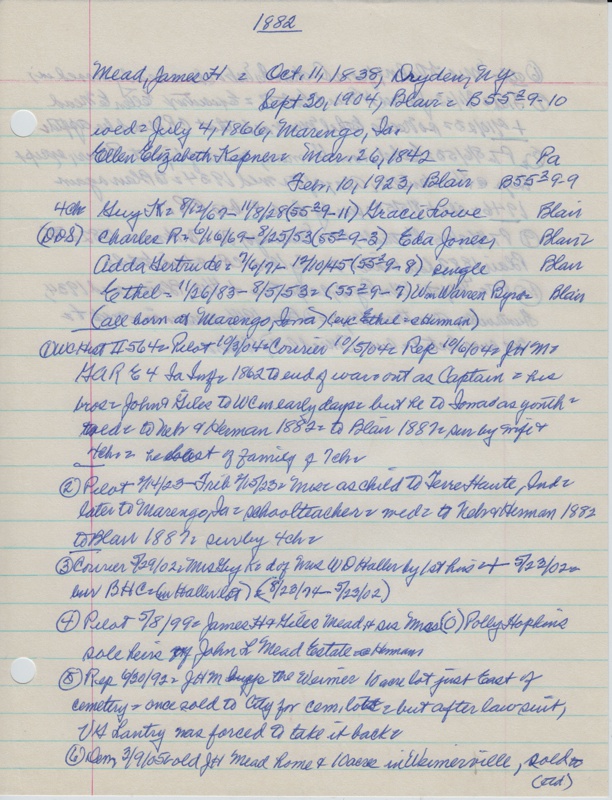 1882
Mead, James H = Oct. 11, 1838, Dryden, NY
Sept 30, 1904, Blair = B55²9-10
wed = July 4, 1866, Marengo, Ia.
Ellen Elizabeth Kapner = Mar. 26, 1842 Pa
Feb. 10, 1923, Blair B55²9-9
4ch Guy K = 8/12/67-11/8/28 (55²9-11) Gracie Lowe Blair
(DDS) Charles R = 6/16/69-8/25/53 (55²9-3) Eda Jones, Blair
Adda Gertrude = 7/6/71-12/10/45 (55²9-8) single Blair
Ethel = 11/26/83-8/5/53 = (55²9-7) Wm Warren Byro= Blair
(all born at Marengo, Iowa) (exc Ethel = Herman)
① WC Hist II 564 = Pilot 10/6/04 = Courier 10/5/04 = Rep 10/6/04 = JHM =
GAR E 4 Ia Inf = 1862 to end of war = out as Captain = his
bros = John & Giles to WC in early days = but he to Iowa as youth =
wed = to Nebr & Herman 1882 = to Blair 1887 = sur by wife &
4ch = he of family of 7ch =
② Pilot 2/14/23 - Trib 2/15/23 = Move as child to Terre Haute, Ind =
later to Marengo, Ia = schoolteacher = wed = to Nebr & Herman 1882
to Blair 1887 = sur by 4ch =
③ Courier 5/29/02 = Mrs Guy K = d of Mrs WD Haller by 1st hus = + 5/23/02 =
bur BHC = (in Haller lot) = (8/23/74 - 5/23/02)
④ Pilot 5/8/99 = James H + Giles Mead + sis Mrs (?) Polly Hopkins
sole heirs of John L Mead Estate = Herman =
⑤ Rep 6/30/92 = JHM buys the Weimer 10 acre lot just East of
cemetery = once sold to City for cem lots = but after lawsuit,
VG Lantry was forced to take it back =
⑥ Dem, 3/9/05 = old JH Mead home & 10 acre in Weimerville, sold to